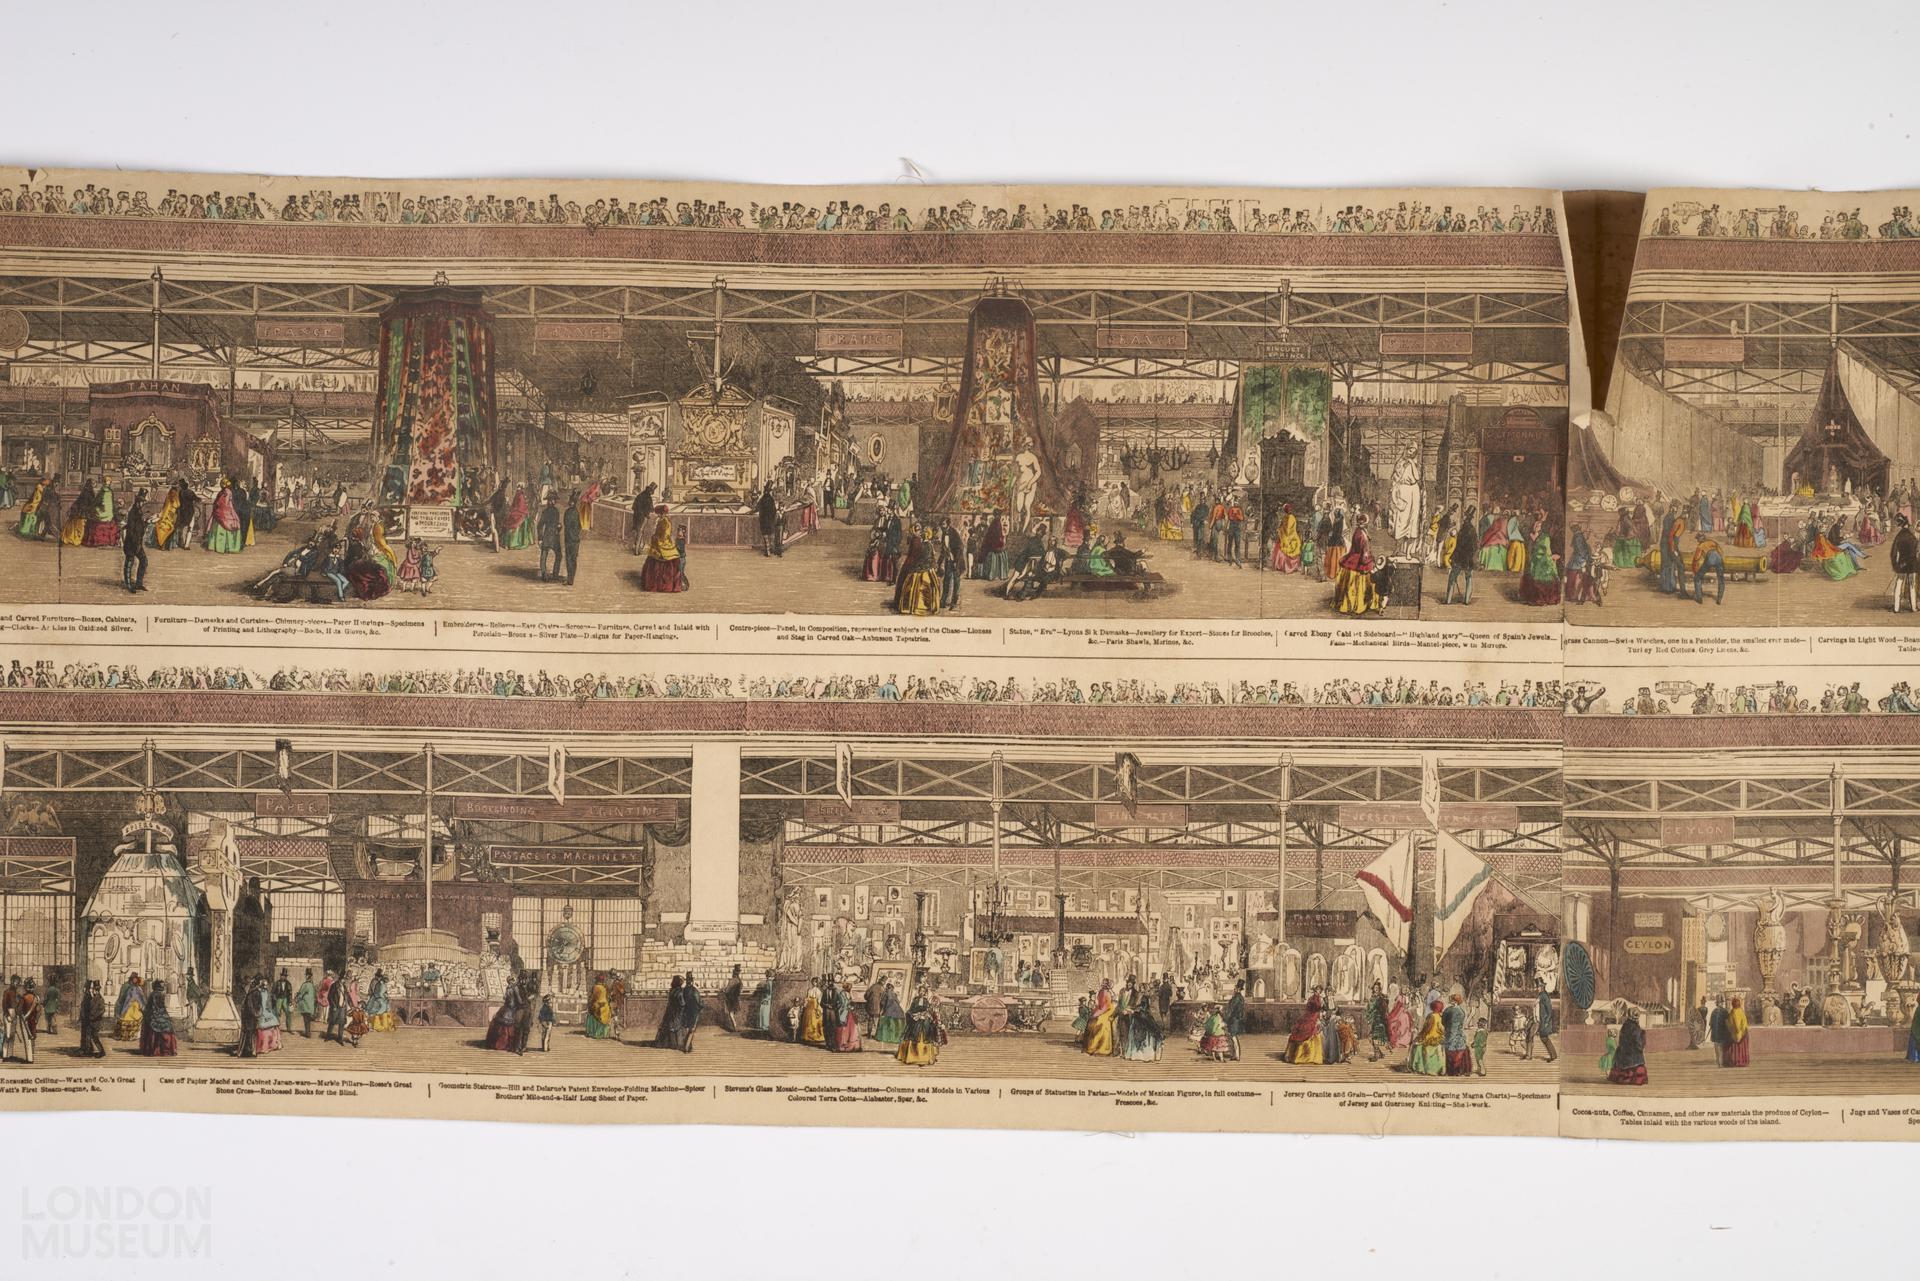 FRANCE
FRANCE
FRANCE
FRANCE
TAHAN
and Carved Furniture—Boxes, Cabinets,
Clocks— Articles in Oxidized Silver.
Furniture—Damasks and Curtains—Chimney-pieces—Paper Hangings—Specimens
of Printing and Lithography—Boots, Hats Gloves, &c.
Embroideries—Bellows—Easy Chairs—Screens—Furniture, Carved and Inlaid with
Porcelain—Bronzes—Silver Plate—Designs for Paper-Hangings.
Centre-piece—Panel, in Composition, representing subjects of the Chase—Lioness
and Stag in Carved Oak—Aubusson Tapestries.
Statue, "Eve"—Lyons Silk Damasks—Jewellery for Export—Stones for Brooches,
&c.—Paris Shawls, Merinos, &c.
Carved Ebony Cabinet Sideboard—"Highland Mary"—Queen of Spain's Jewels—
Fans—Mechanical Birds—Mantel-piece, with Mirrors.
Brass Cannon—Swiss Watches, one in a Penholder, the smallest ever made—
Turkey Red Cottons, Grey Linens, &c.
Carvings in Light Wood—
Table-
PAPER
BOOKBINDING PRINTING
FINE ARTS
FINE ARTS
JERSEY & GUERNSEY
CEYLON
PASSAGE TO MACHINERY
BLIND SCHOOL
CEYLON
Encaustic Ceiling—Watt and Co.'s Great
Watt's First Steam-engine, &c.
Case off Papier Maché and Cabinet Japan-ware—Marble Pillars—Rosse's Great
Stone Cross—Embossed Books for the Blind.
Geometric Staircase—Hill and Delarue's Patent Envelope-Folding Machine—Spicer
Brothers' Mile-and-a-Half Long Sheet of Paper.
Stevens's Glass Mosaic—Candelabra—Statuettes—Columns and Models in Various
Coloured Terra Cotta—Alabaster, Spar, &c.
Groups of Statuettes in Parian—Models of Mexican Figures, in full costume—
Frescoes, &c.
Jersey Granite and Grain—Carved Sideboard (Signing Magna Charta)—Specimens
of Jersey and Guernsey Knitting—Shell-work.
Cocoa-nuts, Coffee, Cinnamon, and other raw materials the produce of Ceylon—
Tables inlaid with the various woods of the island.
Jugs and Vases of
LONDON
MUSEUM